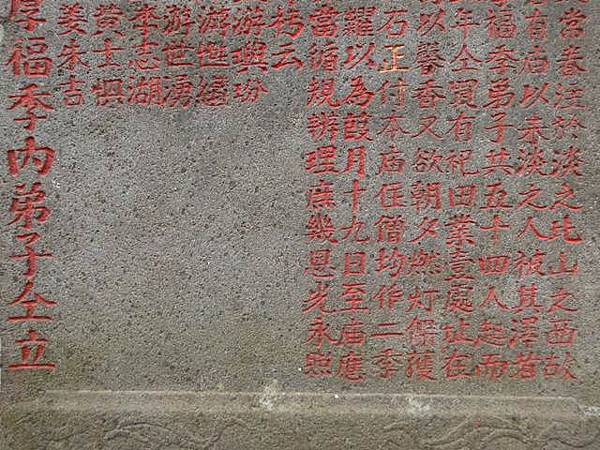 常春淡於淡之北山之西故
有庙以來淡之人被其泽者
福季弟子共五十四人起而
年仝買有祀田業壹處址在
以馨香又欲朝夕燃灯僱獲
石正付本庙住僧均作二季
耀以為葭月十九日至庙應
當循規辦理庶幾恩光永照
杨云
游興玢
游世繡
游世湧
李志湖
黄士
姜朱吉
厚福季内弟子仝立